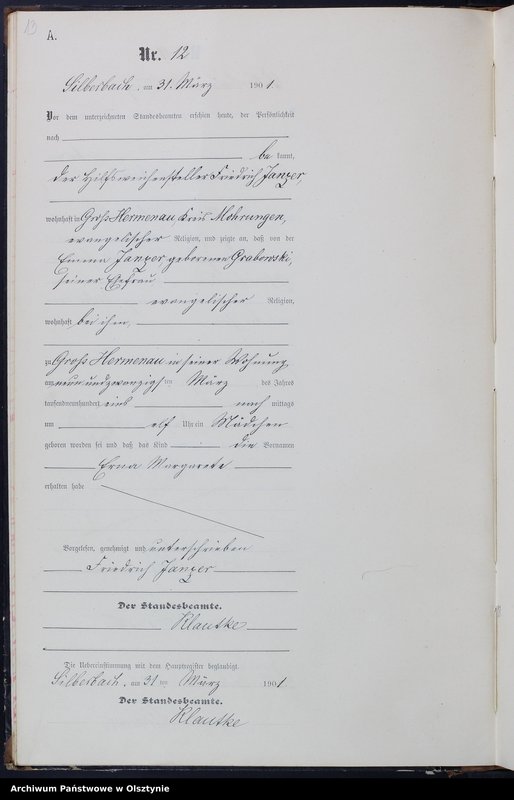 13
A.
Nr. 12
Silberbach, am 31. März 1901
Vor dem unterzeichneten Standesbeamten erschien heute, der Persönlichkeit
nach
be kannt,
der Hilfsweichensteller Friedrich Janzer,
wohnhaft in Groß Hermenau, Kreis Mohrungen,
evangelischer Religion, und zeigte an, daß von der
Emma Janzer geborenen Grabowski,
seiner Ehefrau
evangelischer Religion,
wohnhaft bei ihm,
zu Groß Hermenau in seiner Wohnung
am neunundzwanzigsten März des Jahres
tausendneunhundert eins nach mittags
um elf Uhr ein Mädchen
geboren worden sei und daß das Kind die Vornamen
Erna Margarete
erhalten habe
Vorgelesen, genehmigt und unterschrieben
Friedrich Janzer
Der Standesbeamte.
Klautke
Die Uebereinstimmung mit dem Hauptregister beglaubigt
Silberbach, am 31 ten März 1901
Der Standesbeamte.
Klautke
Archiwum Państwowe w Olsztynie